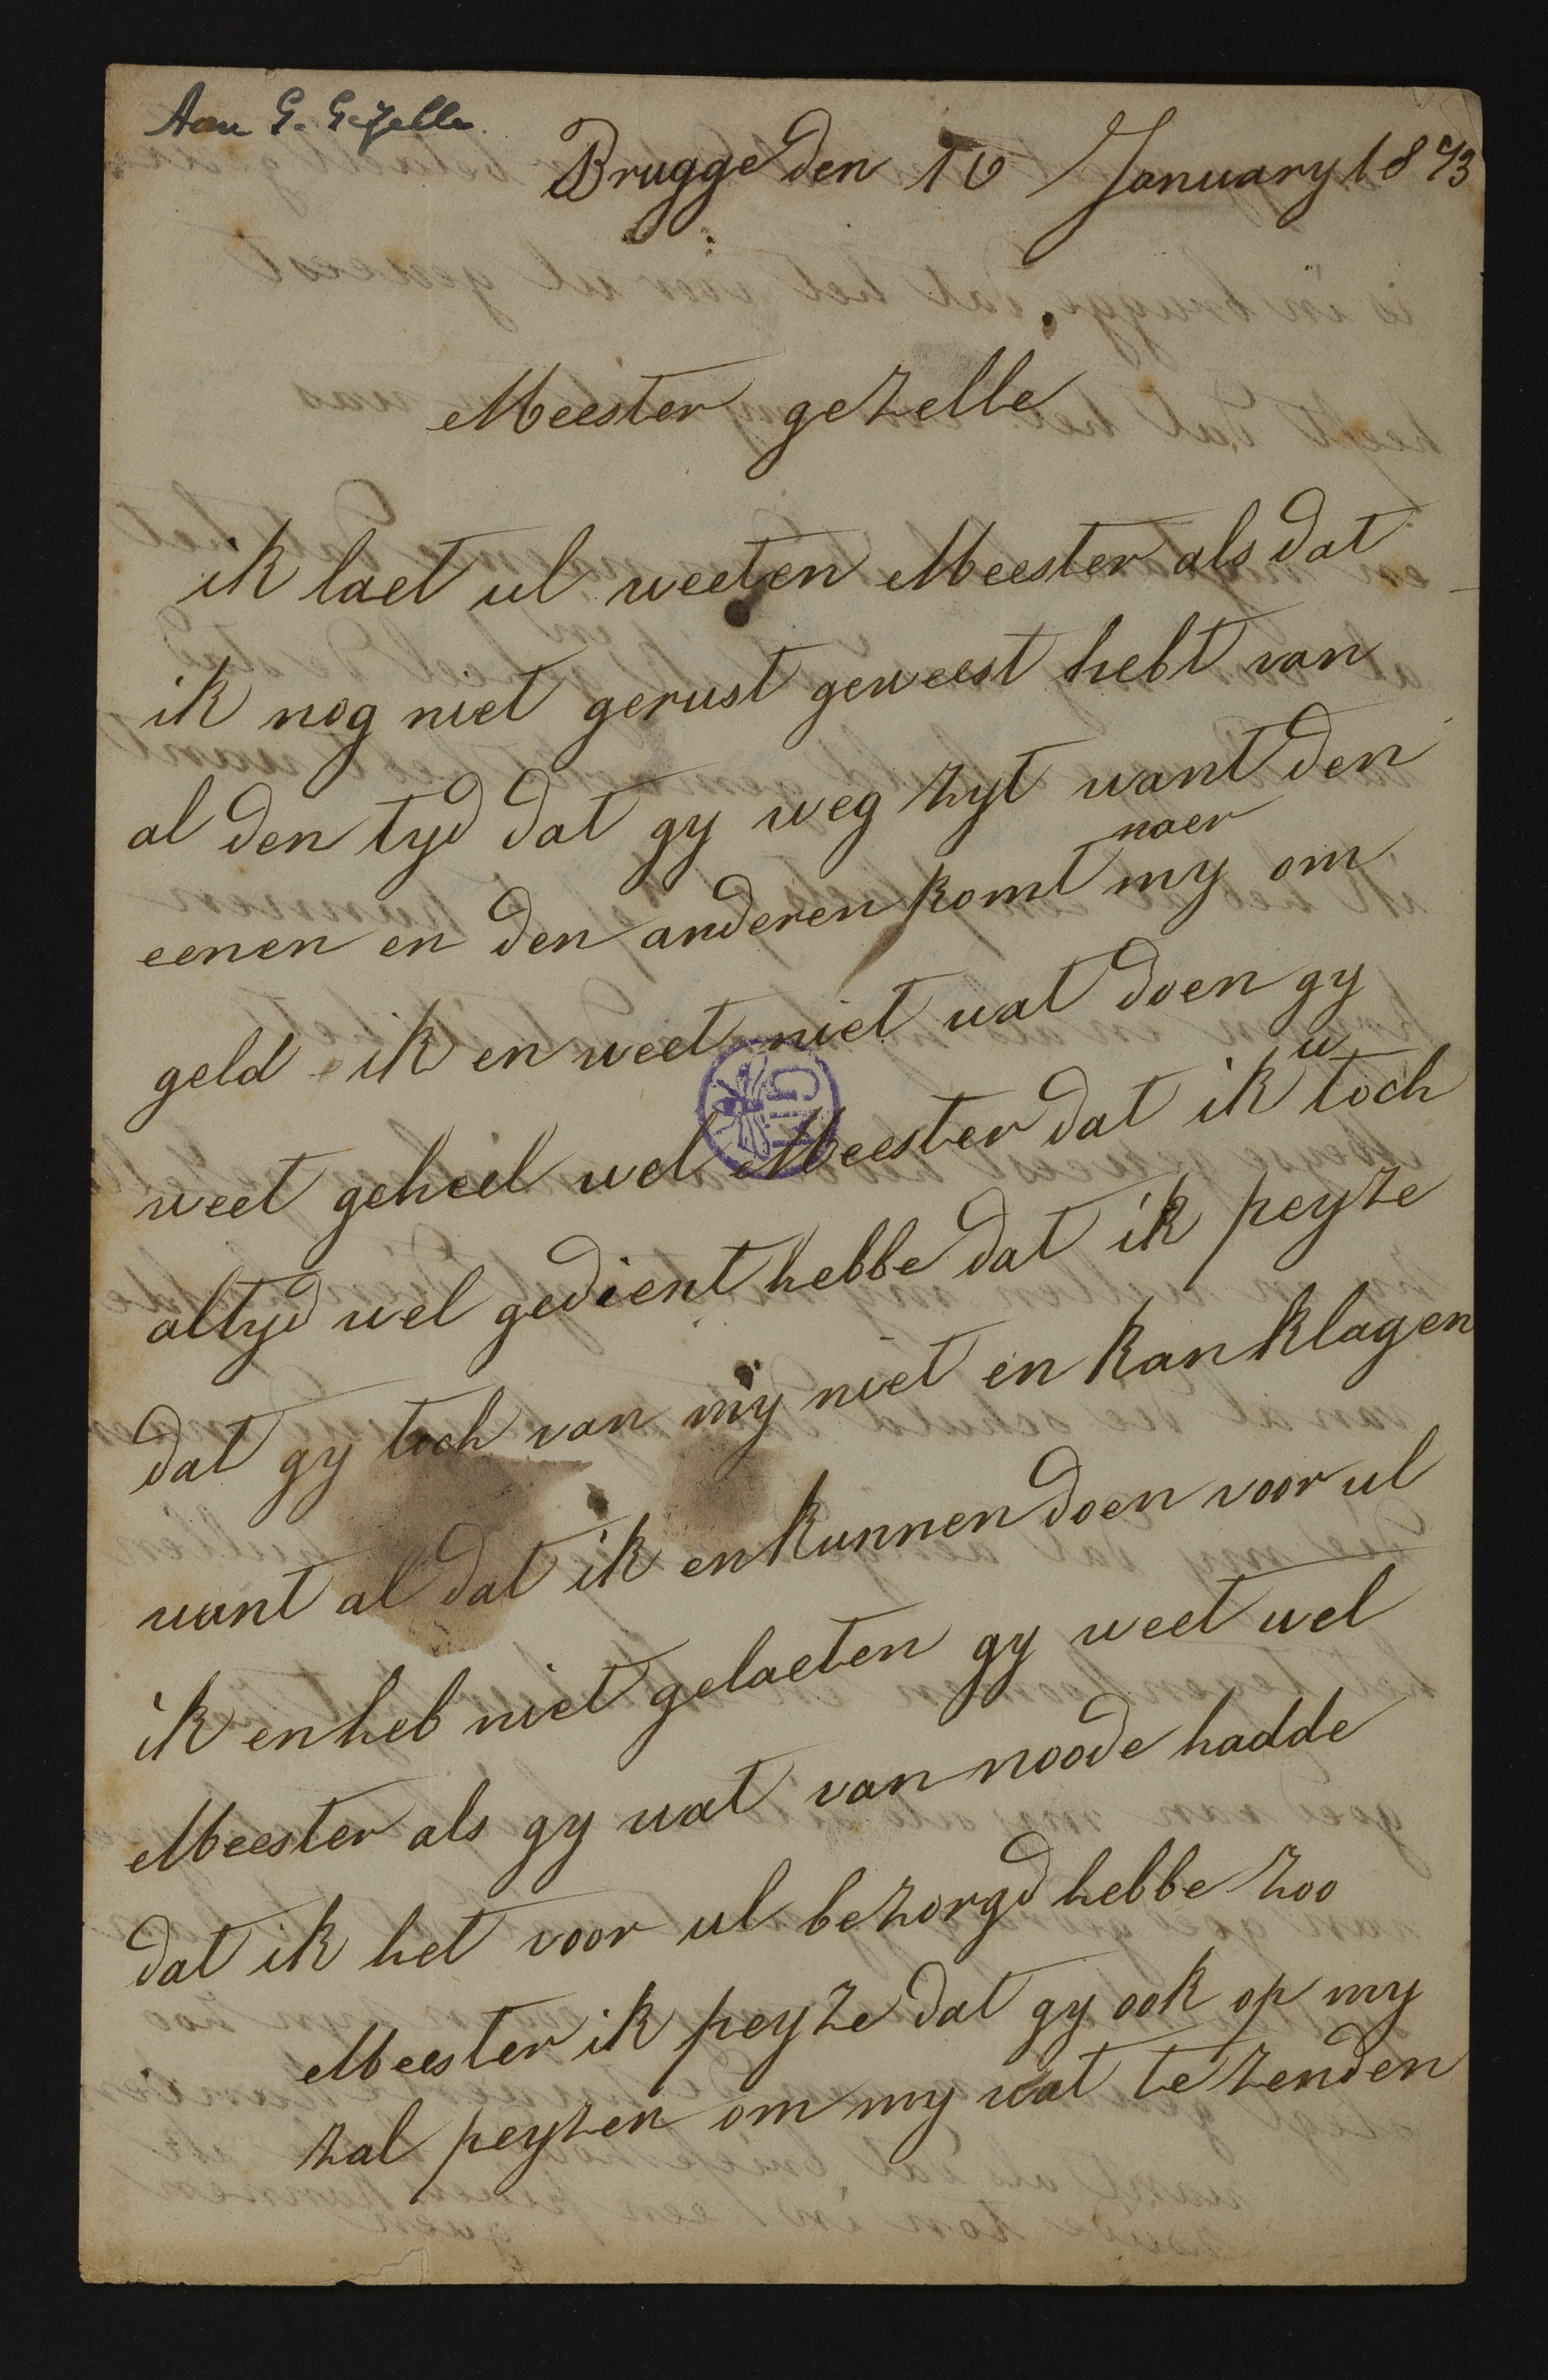 Aan G. Gezelle
Brugge den 16 January 1873
Meester gezelle
ik laet ul weeten Meester als dat
ik nog niet gerust geweest hebt van
al den tyd dat gy weg zyt want den
eenen en den anderen komt naer my om
geld ik en weet niet wat doen gy
weet geheel wel Meester dat ik u toch
altyd wel gedient hebbe dat ik peyze
dat gy toch van my niet en kan klagen
want al dat ik en kunnen doen voor ul
ik en heb niet gelaeten gy weet wel
Meester als gy wat van noode hadde
dat ik het voor ul bezorgd hebbe zoo
Meester ik peyze dat gy ook op my
zal peyzen om my wat te zenden